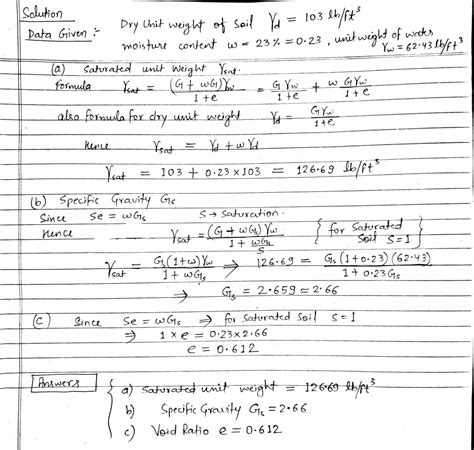 Solution
Data Given :- Dry Unit weight of Soil γd = 103 lb/ft³
moisture content w = 23% = 0.23, unit weight of water γw = 62.43 lb/ft³
(a) Saturated unit weight γsat.
formula γsat = (G + wG)γw / 1+e = G γw / 1+e + w G γw / 1+e
also formula for dry unit weight γd = Gγw / 1+e
Hence γsat = γd + wγd
γsat = 103 + 0.23 × 103 = 126.69 lb/ft³
(b) Specific Gravity Gs
Since Se = wGs S → Saturation.
Hence γsat = (G + wGs) γw / 1 + wGs/S { for Saturated Soil S=1 }
γsat = Gs(1+w)γw / 1 + wGs → 126.69 = Gs(1+0.23)(62.43) / 1 + 0.23Gs
⇒ Gs = 2.659 ≈ 2.66
(C) Since Se = wGs ⇒ for saturated Soil S=1
⇒ 1 × e = 0.23×2.66
e = 0.612
Answers { a) Saturated unit weight = 126.69 lb/ft³
b) Specific Gravity Gs = 2.66
c) Void Ratio e = 0.612